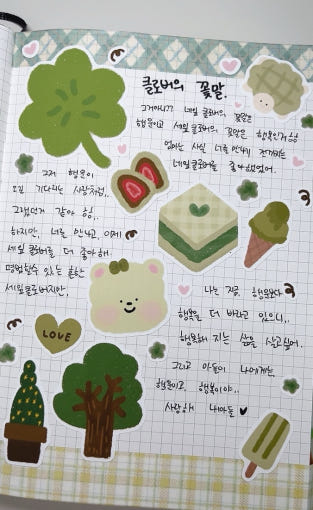 클로버의 꽃말.
그거아니?? 네잎 클로버의 꽃말은
행운이고 세잎클로버의 꽃말은 행복인거 ㅎㅎ
엄마는 사실 너를 만나기 전까지는
네잎클로버를 좋아했었어.
그저 행운이
오길 기다리는 사람처럼..
그랬던거 같아 ㅎㅎ..
하지만, 너를 만나고, 이제
세잎 클로버를 더 좋아해.
평범할수 있는 흔한
세잎클로버지만,
LOVE
나는 지금, 행운보다
행복을 더 바라고 있으니,,
행복해 지는 삶을 살고싶어..
그리고 아들이 나에게는,
행운이고 행복이야..
사랑해 내아들 ♥